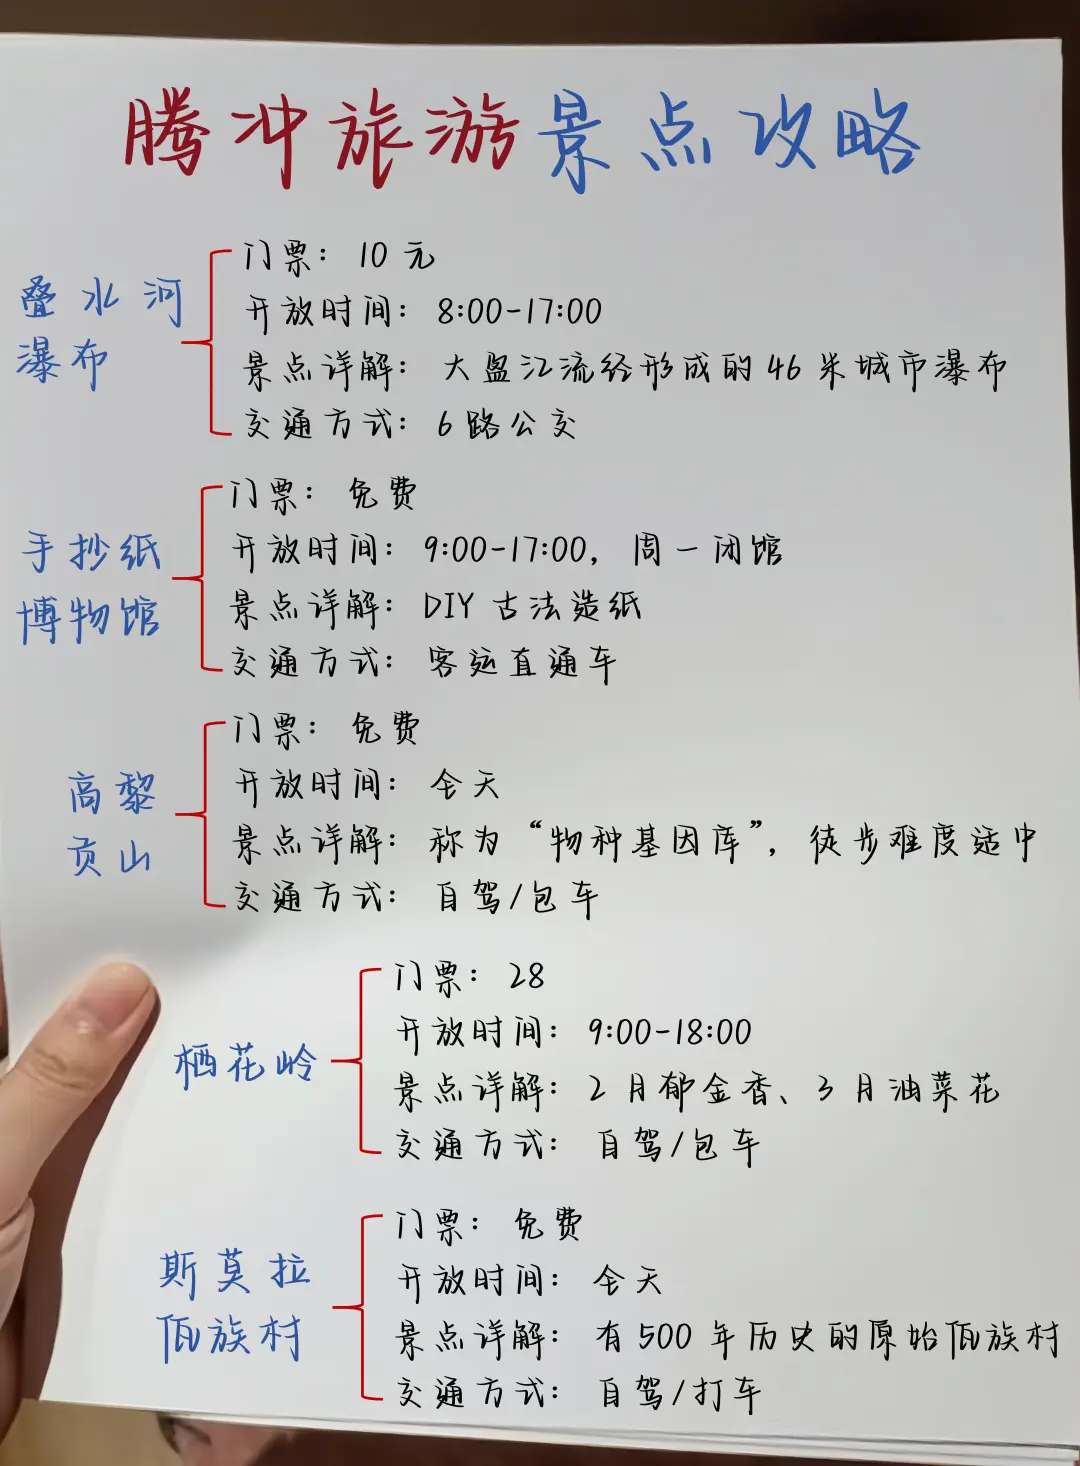 腾冲旅游景点攻略
叠水河
瀑布
门票: 10 元
开放时间: 8:00-17:00
景点详解: 大盈江流经形成的46米城市瀑布
交通方式: 6路公交
手抄纸
博物馆
门票: 免费
开放时间: 9:00-17:00, 周一闭馆
景点详解: DIY 古法造纸
交通方式: 客运直通车
高黎
贡山
门票: 免费
开放时间: 全天
景点详解: 称为“物种基因库”, 徒步难度适中
交通方式: 自驾/包车
栖花岭
门票: 28
开放时间: 9:00-18:00
景点详解: 2月郁金香、3月油菜花
交通方式: 自驾/包车
斯莫拉
佤族村
门票: 免费
开放时间: 全天
景点详解: 有500年历史的原始佤族村
交通方式: 自驾/打车